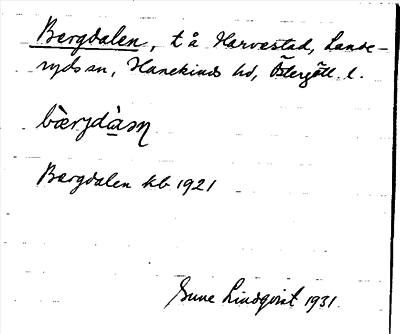 Bergdalen, t å Harvestad, Lande-
ryds sn, Hanekinds hd, Östergötl. l.
bæ̀rjdàsn
Bergdalen kb 1921
Sune Lindqvist 1931.